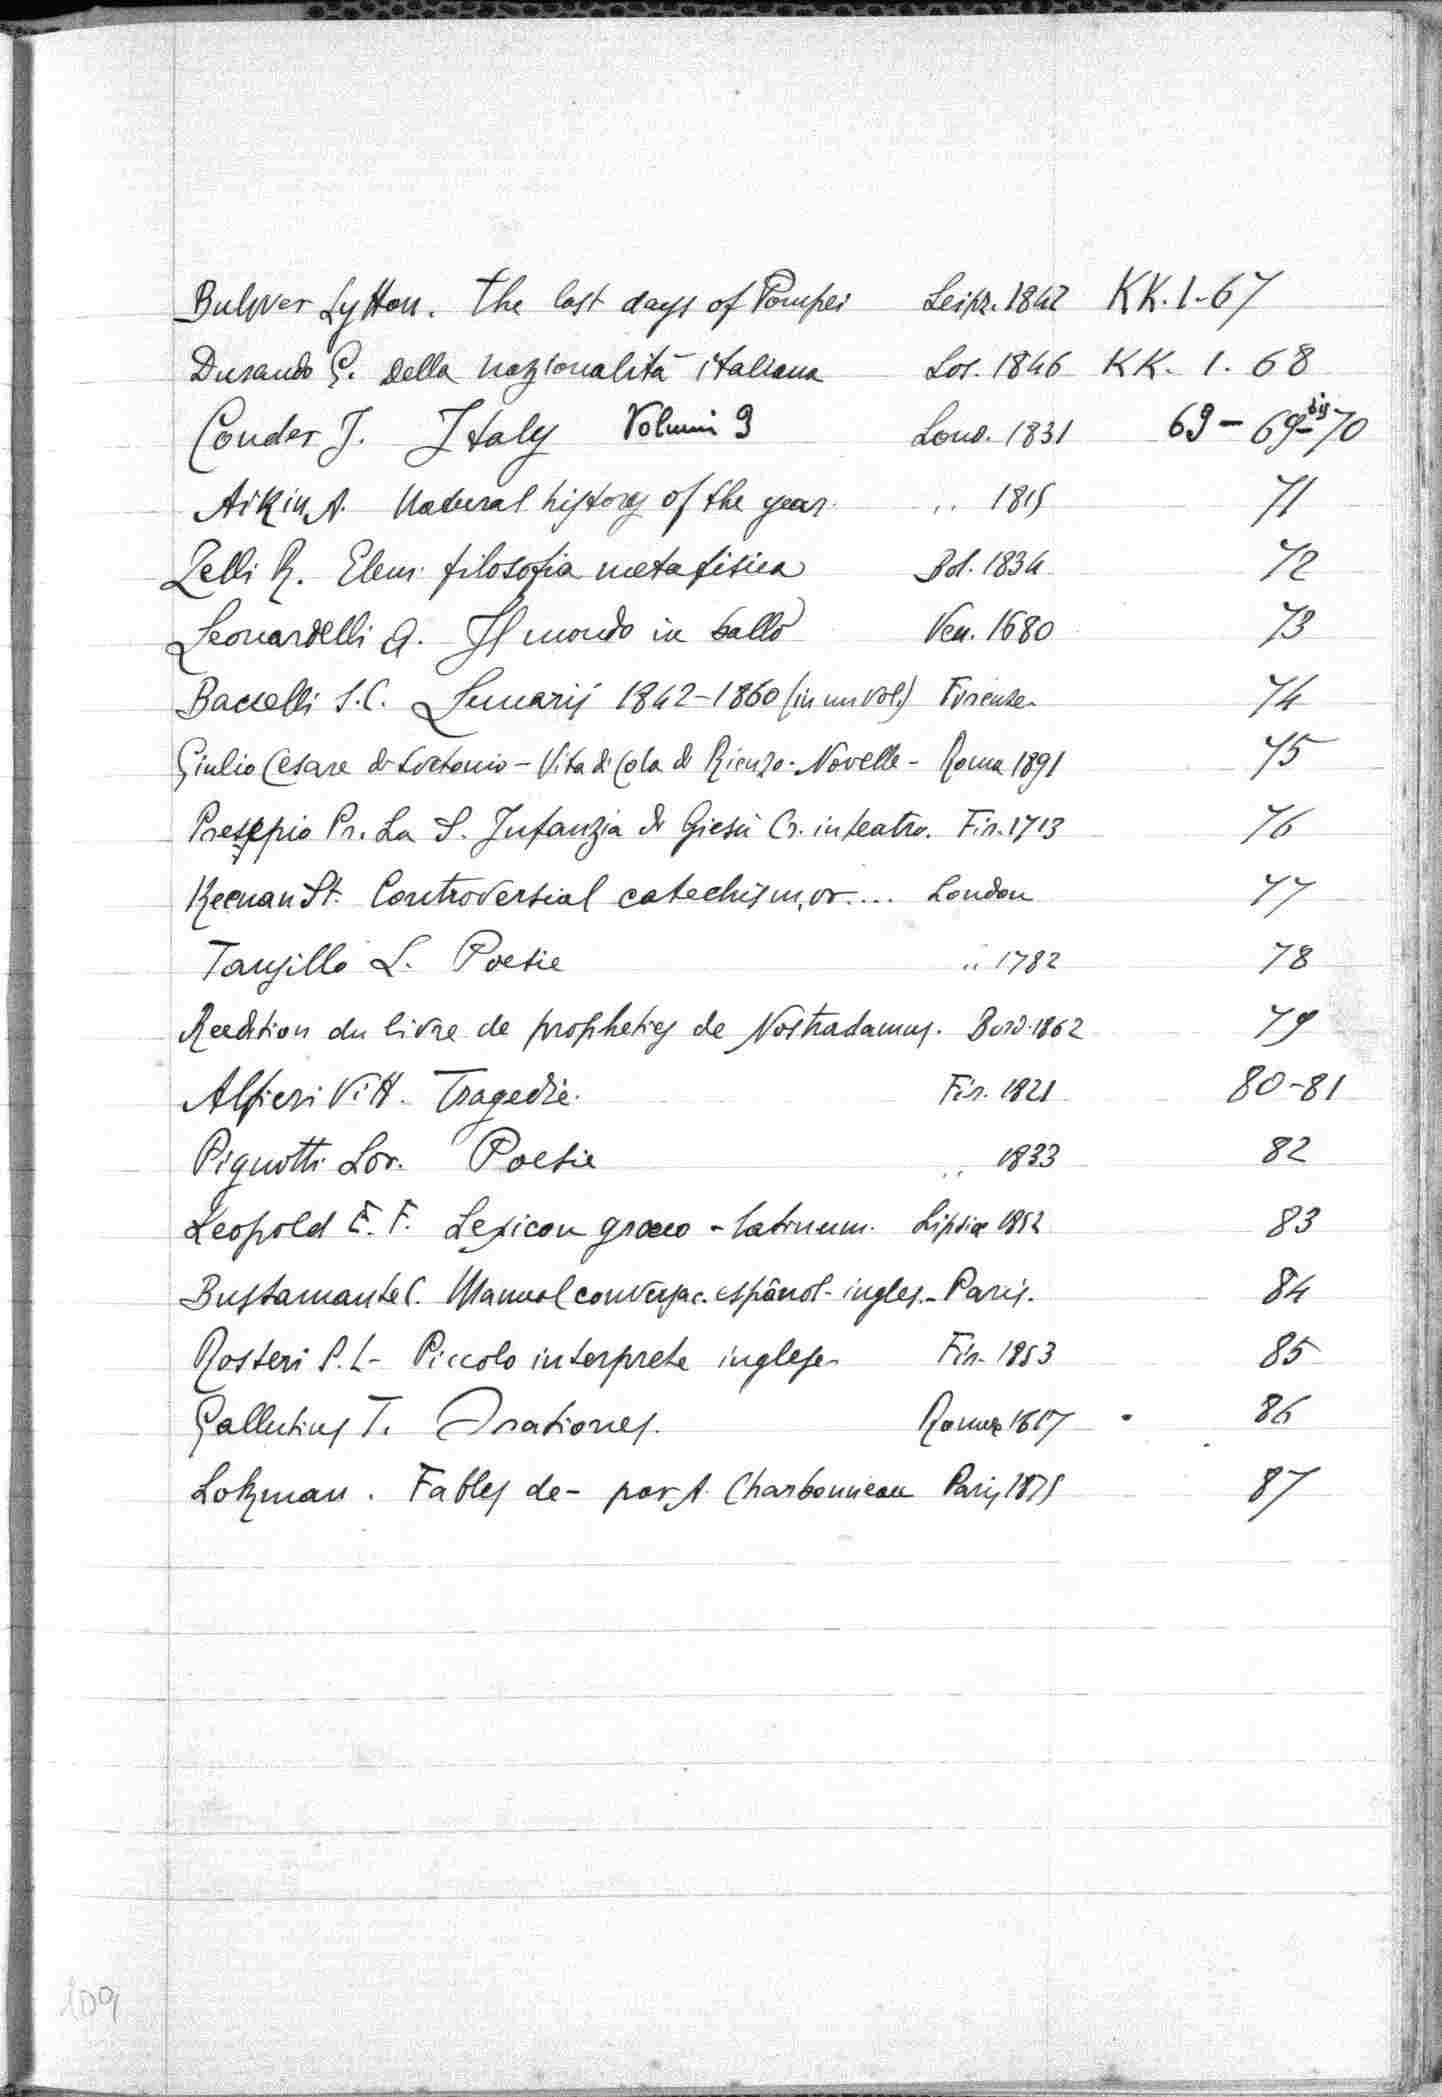 Bulwer Lytton. The last days of Pompei Leipz. 1842 KK. 1-67
Durando G. Della nazionalità italiana Los. 1846 KK. 1. 68
Conder J. Italy Volumi 3 Lond. 1831 69 - 69 bis - 70
Aikin A. Natural history of the year. " 1815 71
Zelli R. Elem. filosofia metafisica Bol. 1834 72
Leonardelli G. Il mondo in ballo Ven. 1680 73
Baccelli S.C. Lunarij 1842-1860 (in un vol.) Firenze. 74
Giulio Cesare di Svetonio - Vita di Cola di Rienzo. Novelle - Roma 1891 75
Preseppio Pr. La S. Infanzia di Giesù Cr. in teatro. Fir. 1713 76
Keenan St. Controversial catechism, or .... London 77
Tansillo L. Poesie " 1782 78
Reedition du livre de propheties de Nostradamus. Bord. 1862 79
Alfieri Vitt. Tragedie. Fir. 1821 80-81
Pignotti Lor. Poesie " 1833 82
Leopold E. F. Lexicon graeco - latinum. Lipsiae 1852 83
Bustamante C. Manual conversac. español - ingles. - Paris. 84
Rosteri P. L- Piccolo interprete inglese. Fir. 1853 85
Gallutius T. Orationes. Romae 1617 86
Lokman. Fables de - par A. Charbonneau Paris 1875 87
109